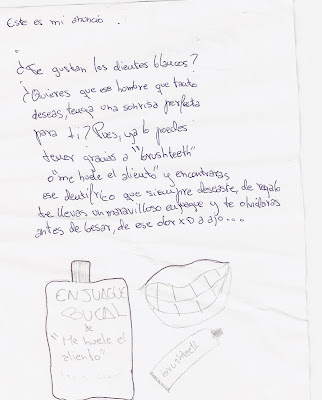 Este es mi anuncio.
¿Te gustan los dientes blancos?
¿Quieres que ese hombre que tanto
deseas, tenga una sonrisa perfecta
para ti? Pues, ya lo puedes
tener gracias a "brushteeth"
o "me huele el aliento" y encontraras
ese dentífrico que siempre deseaste, de regalo
te llevas un maravilloso enjuague y te olvidaras
antes de besar, de ese olor xD a ajo....
ENJUAGUE
BUCAL
de
"Me huele el
aliento"
brushteeth